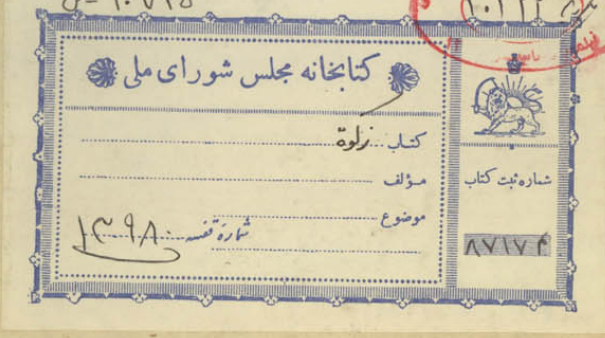 کتابخانه مجلس شورای ملی
کتاب زکوة
مؤلف
موضوع
شمارهٔ قفسه ۱۳۹۸۰
شماره ثبت کتاب
۸۷۱۷۴